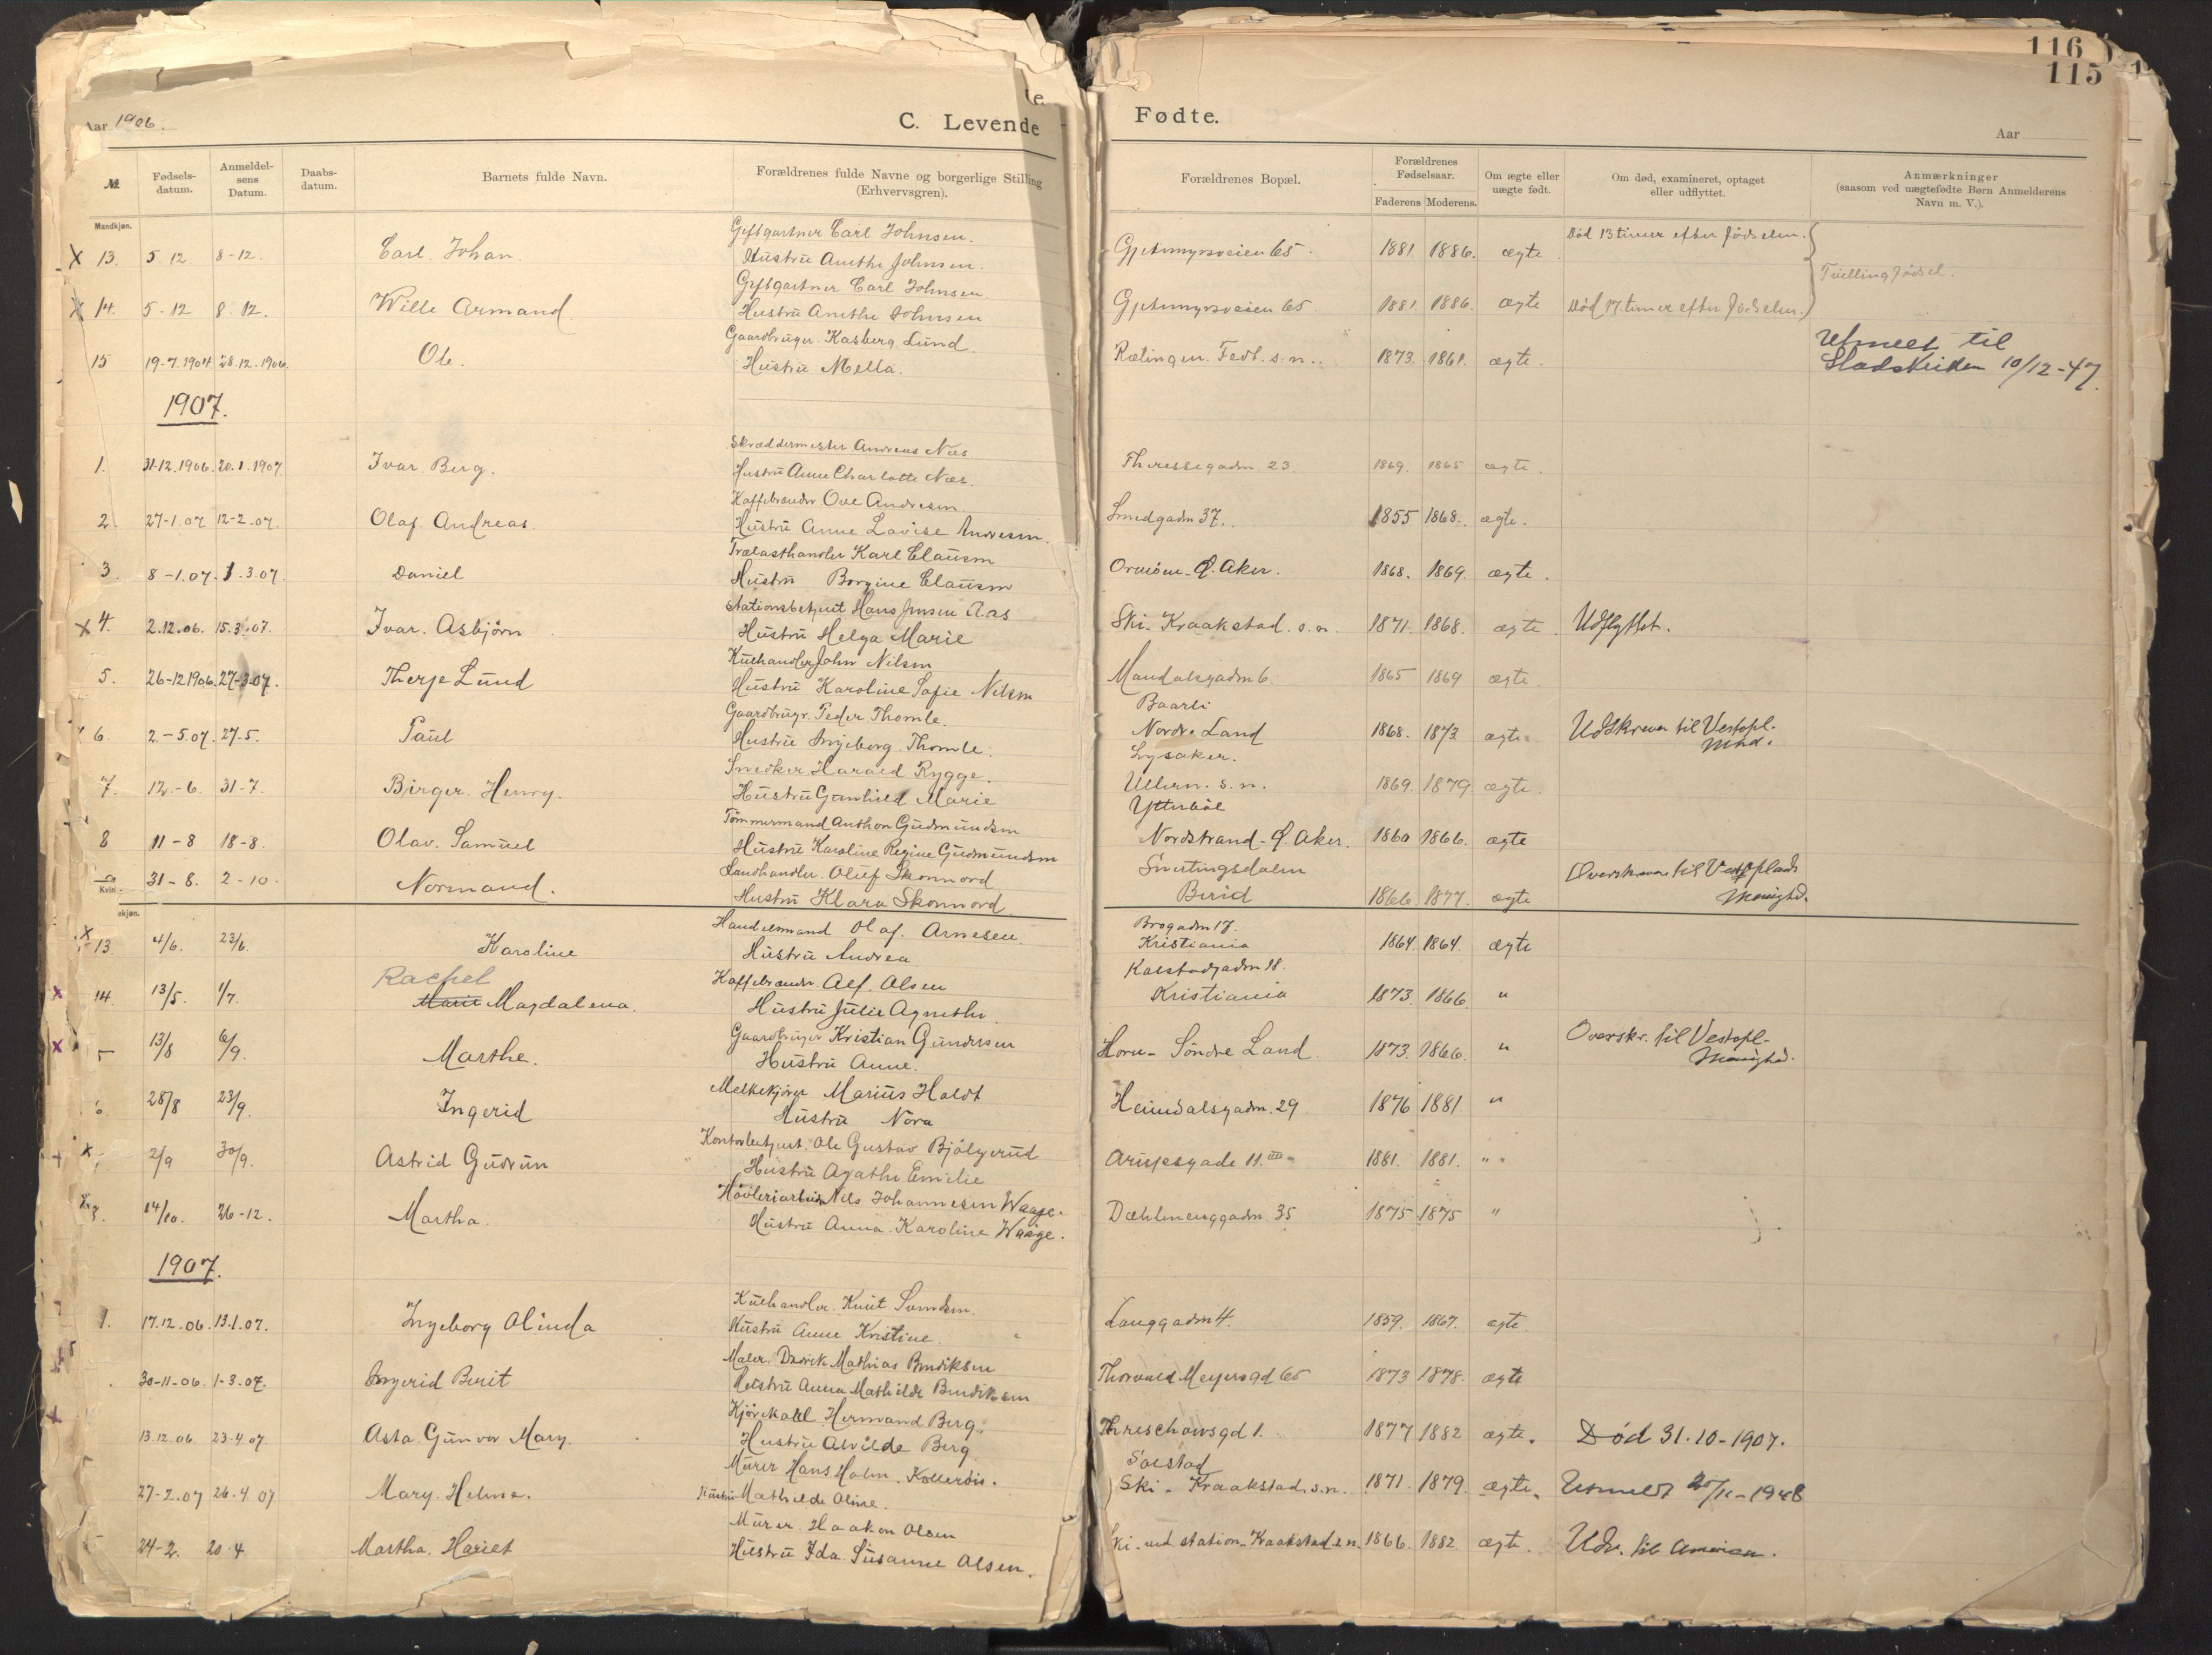 116
115
Aar 1906.
C. Levende
Fødte.
Aar
№
Fødsels-datum.
Anmeldel-sens Datum.
Daabs-datum.
Barnets fulde Navn.
Forældrenes fulde Navne og borgerlige Stilling (Erhvervsgren).
Forældrenes Bopæl.
Forældrenes Fødselsaar.
Faderens Moderens.
Om ægte eller uægte født.
Om død, examineret, optaget eller udflyttet.
Anmærkninger (saasom ved uægtefødte Børn Anmelderens Navn m. V.).
Mandkjøn.
Carl Johnsen.
X 13. 5.12 8-12. Carl Johan Hustru Anethe Johnsen. Gjetemyrsveien 65. 1881. 1886. ægte Død 13 timer efter fødselen.
Carl Johnsen
X 14. 5-12 8.12. Wille Armand Hustru Anethe Johnsen Gjetemyrsveien 65. 1881. 1886. ægte Død 17 timer efter Fødselen.
Gaardbruger Kasberg Lund.
15 19-7.1904 28.12.1906. Ole. Hustru Mella. Rælingen Fedt. s.n. 1873. 1861. ægte. Utmeldt til
10/12-47.
1907.
Skræddermester Andreas Næs
1. 31-12.1906. 20.1.1907. Ivar Berg. Hustru Anne Charlotte Næs. Theresegadn 23. 1869. 1865 ægte.
Kaffebrænder Ove Andresen
2. 27-1.07 12-2.07. Olaf Andreas Hustru Anne Lovise Andresen. Smedgadn 37. 1855 1868. ægte.
Trælasthandler Karl Clausen
3. 8-1.07. 1.3.07. Daniel Hustru Borgine Clausen Ormøen-Ø. Aker. 1868. 1869. ægte.
Stationsbetjent Hans Jensen Aas
X 4. 2.12.06. 15.3.07. Ivar Asbjørn Hustru Helga Marie Ski-Kraakstad s.n. 1871. 1868. ægte. Udflyttet.
Kulhandler John Nilsen
5. 26-12 1906. 27-3-07. Therje Lund Hustru Karoline Sofie Nilsen Mandalsgadn 6. 1865 1869 ægte.
Gaardbrugr. Peder Thomle. Baarli
6. 2.-5.07. 27-5. Paul Hustru Ingeborg Thomle. Nordre Land 1868. 1873. ægte. Udskreven til Vestopl. Mnd.
Snedker Harald Rygge. Lysaker.
7. 12.-6. 31-7. Birger Henry. Hustru Gunhild Marie Ullern. s.n. 1869. 1879 ægte.
Tømmermand Anthon Gudmundsen
8 11-8 18-8. Olav. Samuel Hustru Karoline Regine Gudmundsen Nordstrand-Ø. Aker. 1860 1866. ægte
Landhandler Oluf Skonnord Snertingsdalen
9 31-8. 2-10. Normand. Hustru Klara Skonnord. Birid 1866. 1877. ægte Overskreven til Vestoplands Menighed.
Kvindekjøn.
Handelsmand Olaf. Arnesen. Brogadn 17.
X 13. 4/6. 23/6. Karoline Hustru Andrea. Kristiania 1864. 1864. ægte
Rachel Kaffebrænder Alf. Olsen Kalstadgadn 18.
X 14. 13/5. 1/7. Marie Magdalena. Hustru Julie Agnethe. Kristiania 1873. 1866. "
Gaardbruger Kristian Gundersen
X 5 13/8 6/9. Marthe. Hustru Anne. Horn-Søndre Land. 1873. 1866. " Overskr. til Vestopl-Menighed.
Melkekjører Marius Holdt
6. 28/8 23/9. Ingerid Hustru Nora Heimdalsgadn. 29 1876 1881 "
Kontorbetjent. Ole Gustav Bjølgerud
X 2/9 30/9. Astrid Gudrun Hustru Agathe Emilie Arupsgade 11. III 1881. 1881. " "
Høvleriarbeider Nils Johannesen Waage.
14/10. 26-12. Martha. Hustru Anna Karoline Waage. Dæhlenenggadn. 35 1875 1875 "
1907.
Kulhandler. Knut Svendsen.
1. 17.12.06. 13.1.07. Ingeborg Olinda Hustru Anne Kristine. Langgadn 4. 1859. 1867. ægte
Maler. Didrick Mathias Bendiksen
30-11-06. 1-3.07. Ingerid Berit Hustru Anna Mathilde Bendiksen Thorvald Meyersgd 65 1873 1878. ægte
Hermand Berg.
13.12.06. 23.4.07 Asta. Gunvor Mary. Hustru Alvilde Berg Threschowsgd 1. 1877 1882 ægte. Død 31.10-1907.
Murer Hans Holm. Kollerøis. Solstad
27-2.07 26.4.07 Mary. Helene. Hustru Mathilde Oline. Ski-Kraakstad. s.n. 1871. 1879. ægte. Utmeldt 20/11-1948
Murer. Haakon Olsen
24-2. 20.4 Martha. Hariet Hustru Ida Susanne Olsen. Ski ved station-Kraakstad s.n. 1866. 1882. ægte. Udv. til America.